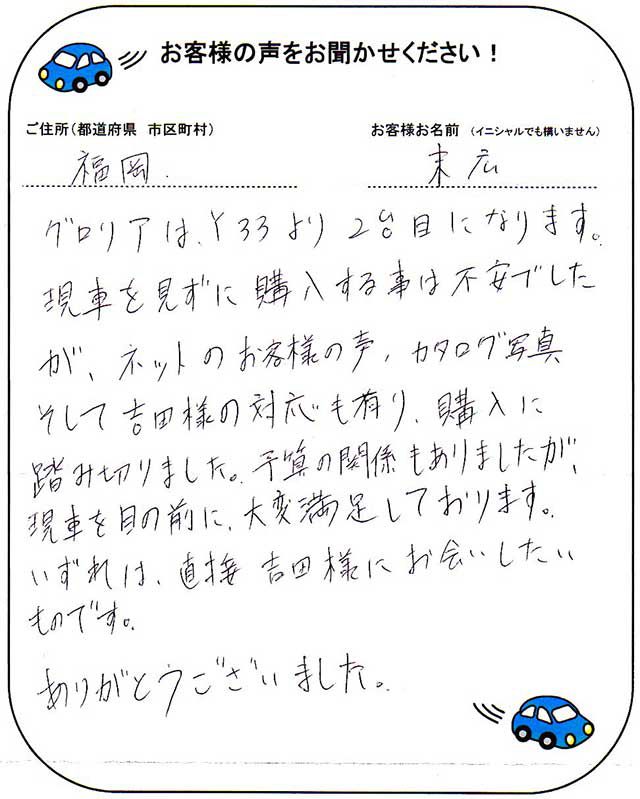 お客様の声をお聞かせください！
ご住所(都道府県 市区町村)
お客様お名前 (イニシャルでも構いません)
福岡.
末広
グロリアは、Y33より2台目になります。
現車を見ずに購入する事は不安でした
が、ネットのお客様の声、カタログ写真
そして吉田様の対応も有り、購入に
踏み切りました。予算の関係もありましたが、
現車を目の前に、大変満足しております。
いずれは、直接吉田様にお会いしたい
ものです。
ありがとうございました。